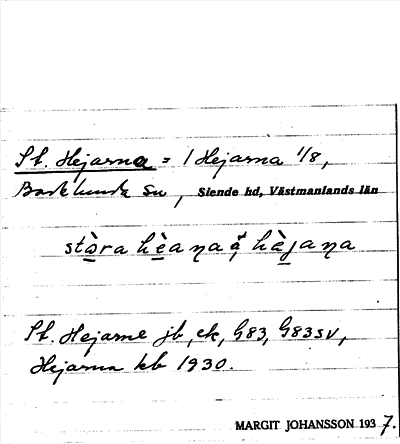 St. Hejarna = 1 Hejarna 1/8,
Barkarö sn, Siende hd, Västmanlands län
stò̱ra hè̱aŋa å̂, hè̱jaŋa
St. Hejarne jb, ek, G83, G83SV,
Hejarna kb 1930.
MARGIT JOHANSSON 1937.